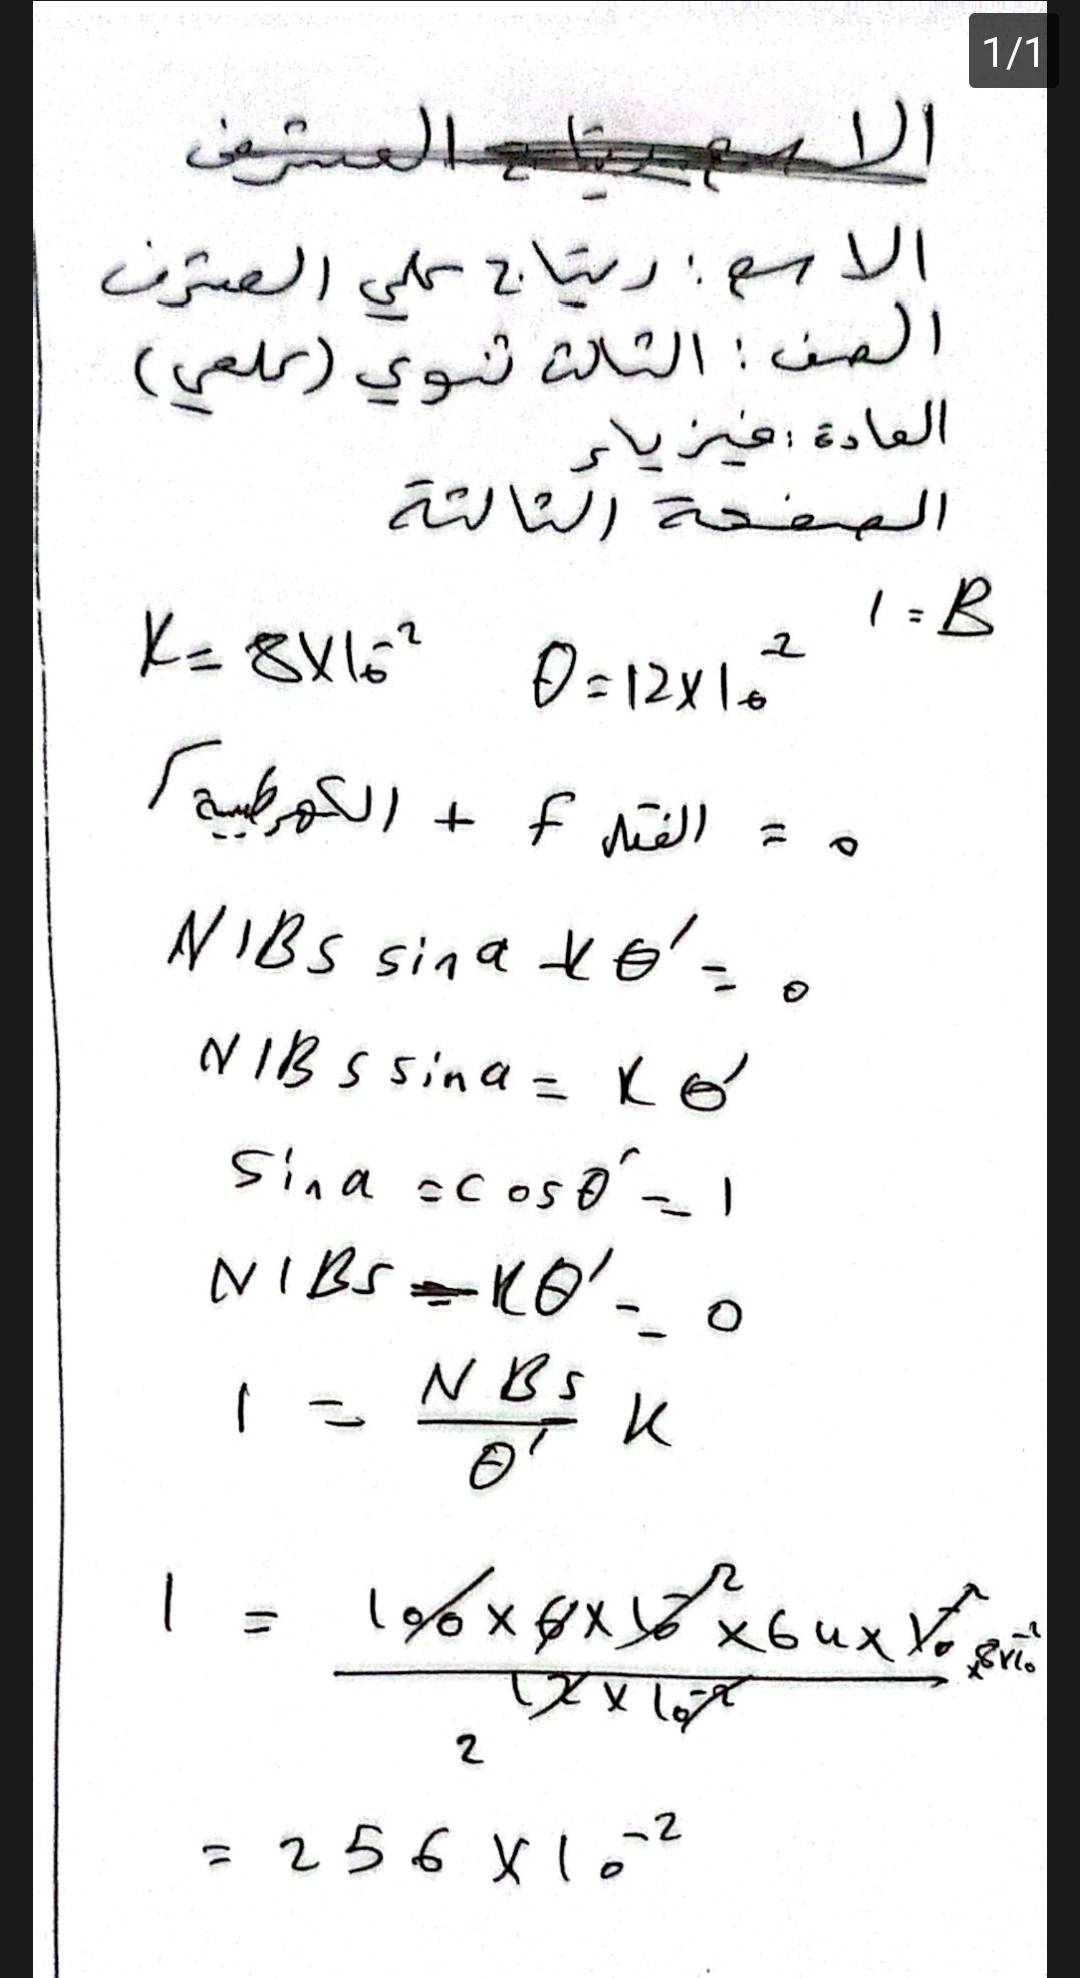 1/1
الاسم: ريتاج علي المشرف
الصف: الثالث ثنوي (علمي)
المادة: فيزياء
الصفحة الثالثة
1 = B
K = 8×10⁻² θ = 12×10⁻²
الكهرطيسية + f الفتل = 0
NIBs sin a - kθ' = 0
NIBs sin a = Kθ'
sin a = cosθ' = 1
NIBs - Kθ' = 0
I = NBs/θ' K
I = 100×6×10⁻²×64×10⁻²×8×10⁻²
12×10⁻²
2
= 256×10⁻²